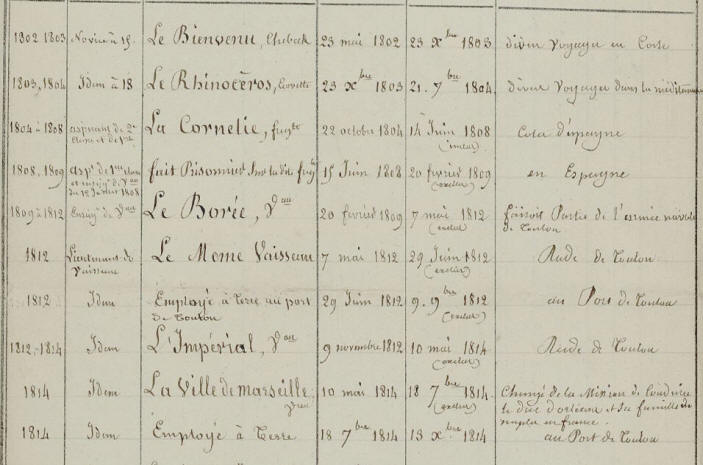 1802 1803 Novice à 15. Le Bienvenu, Chebeck 23 mai 1802 23 Xbre 1803 divers voyages en Corse
1803, 1804 Idem à 18 Le Rhinocéros, Corvette 23 Xbre 1803 21. 7bre 1804. divers voyages dans la méditerranée
1804 à 1808 aspirant de 2e La Cornélie, frégte 22 octobre 1804 14 Juin 1808 Cotes d'espagne
classe et de 1re (inclus)
1808, 1809 aspt de 1re classe fait Prisonnier Sur la dite frégte 15 Juin 1808 20 février 1809 en Espagne
et enseigne de Vau (exclus)
1809 à 1812 Enseig. de Vau Le Borée, Vau 20 février 1809 7 mai 1812 faisait Partie de l'armée navale
(exclus) de Toulon
1812 Lieutenant de Le Meme Vaisseau 7 mai 1812 29 Juin 1812 Rade de Toulon
Vaisseau (exclus)
1812 Idem Employé à terre au port 29 Juin 1812 9. 9bre 1812 au Port de Toulon
de Toulon (exclus)
1812, 1814 Idem L'Impérial, Vau 9 novembre 1812 10 mai 1814 Rade de Toulon
(exclus)
1814 Idem La Ville de marseille 10 mai 1814 18 7bre 1814. Chargé de la Mission de Conduire
Vau (exclus) le duc d'orléans et sa famille de
naples en france.
1814 Idem Employé à terre 18 7bre 1814 13 Xbre 1814 au Port de Toulon